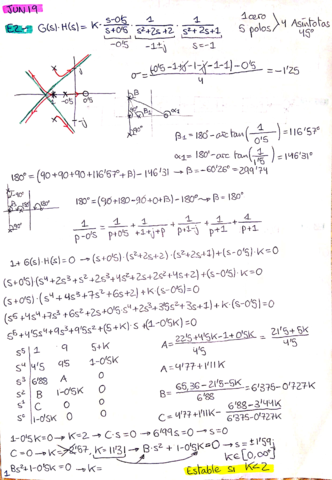 JUN19
E2.- G(s)·H(s) = K · (s-0'5)/(s+0'5) · 1/(s²+2s+2) · 1/(s²+2s+1)
1 cero
5 polos
4 Asíntotas
45°
-0'5 -1±j s=-1
σ = ((-0'5-1+j-1-j-1-1)-0'5)/4 = -1'25
j
-1 -0'5 0'5
-j
β
α1
β1 = 180°- arc tan(1/0'5) = 116'57°
α1 = 180°- arc tan(1/1'5) = 146'31°
180° = (90+90+90+116'57+β) - 146'31 → β = -60'26 = 299'74
180° = (90+180-90+0+β) - 180° → β = 180°
1/(p-0'5) = 1/(p+0'5) + 1/(p+1+j) + 1/(p+1-j) + 1/(p+1) + 1/(p+1)
1+G(s)·H(s)=0 → (s+0'5)·(s²+2s+2)·(s²+2s+1)+(s-0'5)·K=0
(s+0'5)(s⁴+2s³+s²+2s³+4s²+2s+2s²+4s+2)+(s-0'5)·K=0
(s+0'5)·(s⁴+4s³+7s²+6s+2)+K(s-0'5)=0
(s⁵+4s⁴+7s³+6s²+2s+0'5s⁴+2s³+3'5s²+3s+1)+K·(s-0'5)=0
s⁵+4'5s⁴+9s³+9'5s²+(5+K)·s+(1-0'5K)=0
s⁵ 1 9 5+K
s⁴ 4'5 9'5 1-0'5K
s³ 6'88 A 0
s² B 1-0'5K 0
s¹ C 0 0
s⁰ 1-0'5K 0 0
A = (22'5+4'5K-1+0'5K)/4'5 = (21'5+5K)/4'5
A = 4'77+1'11K
B = (65,36-21'5-5K)/6'88 = 6'375-0'727K
C = 4'77+1'11K - (6'88-3'44K)/(6'375-0'727K)
1-0'5K=0 → K=2 → C·s=0 → 6'99s=0 → s=0
K=11'31
B·s²+1-0'5K=0 → s=±1'59j
K∈[0,∞)
Bs²+1-0'5K=0 → K=
Estable si K<2